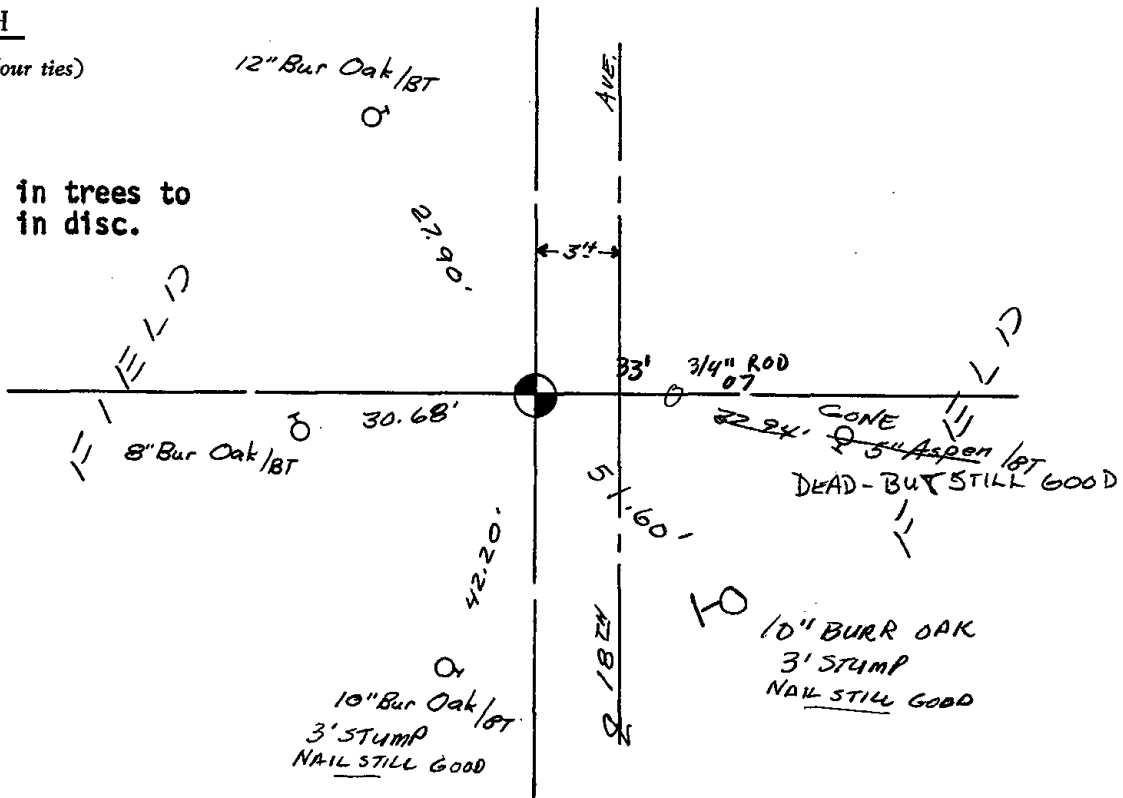 H
our ties)
12" Bur Oak/BT
AVE.
in trees to
in disc.
27.90'
3'±
FIELD
FIELD
33'
3/4" ROD
07
30.68'
8" Bur Oak/BT
32.94'
GONE
5" Aspen/BT
DEAD-BUT STILL GOOD
51.60'
42.20'
18TH
10" BURR OAK
3' STUMP
NAIL STILL GOOD
10" Bur Oak/BT
3' STUMP
NAIL STILL GOOD